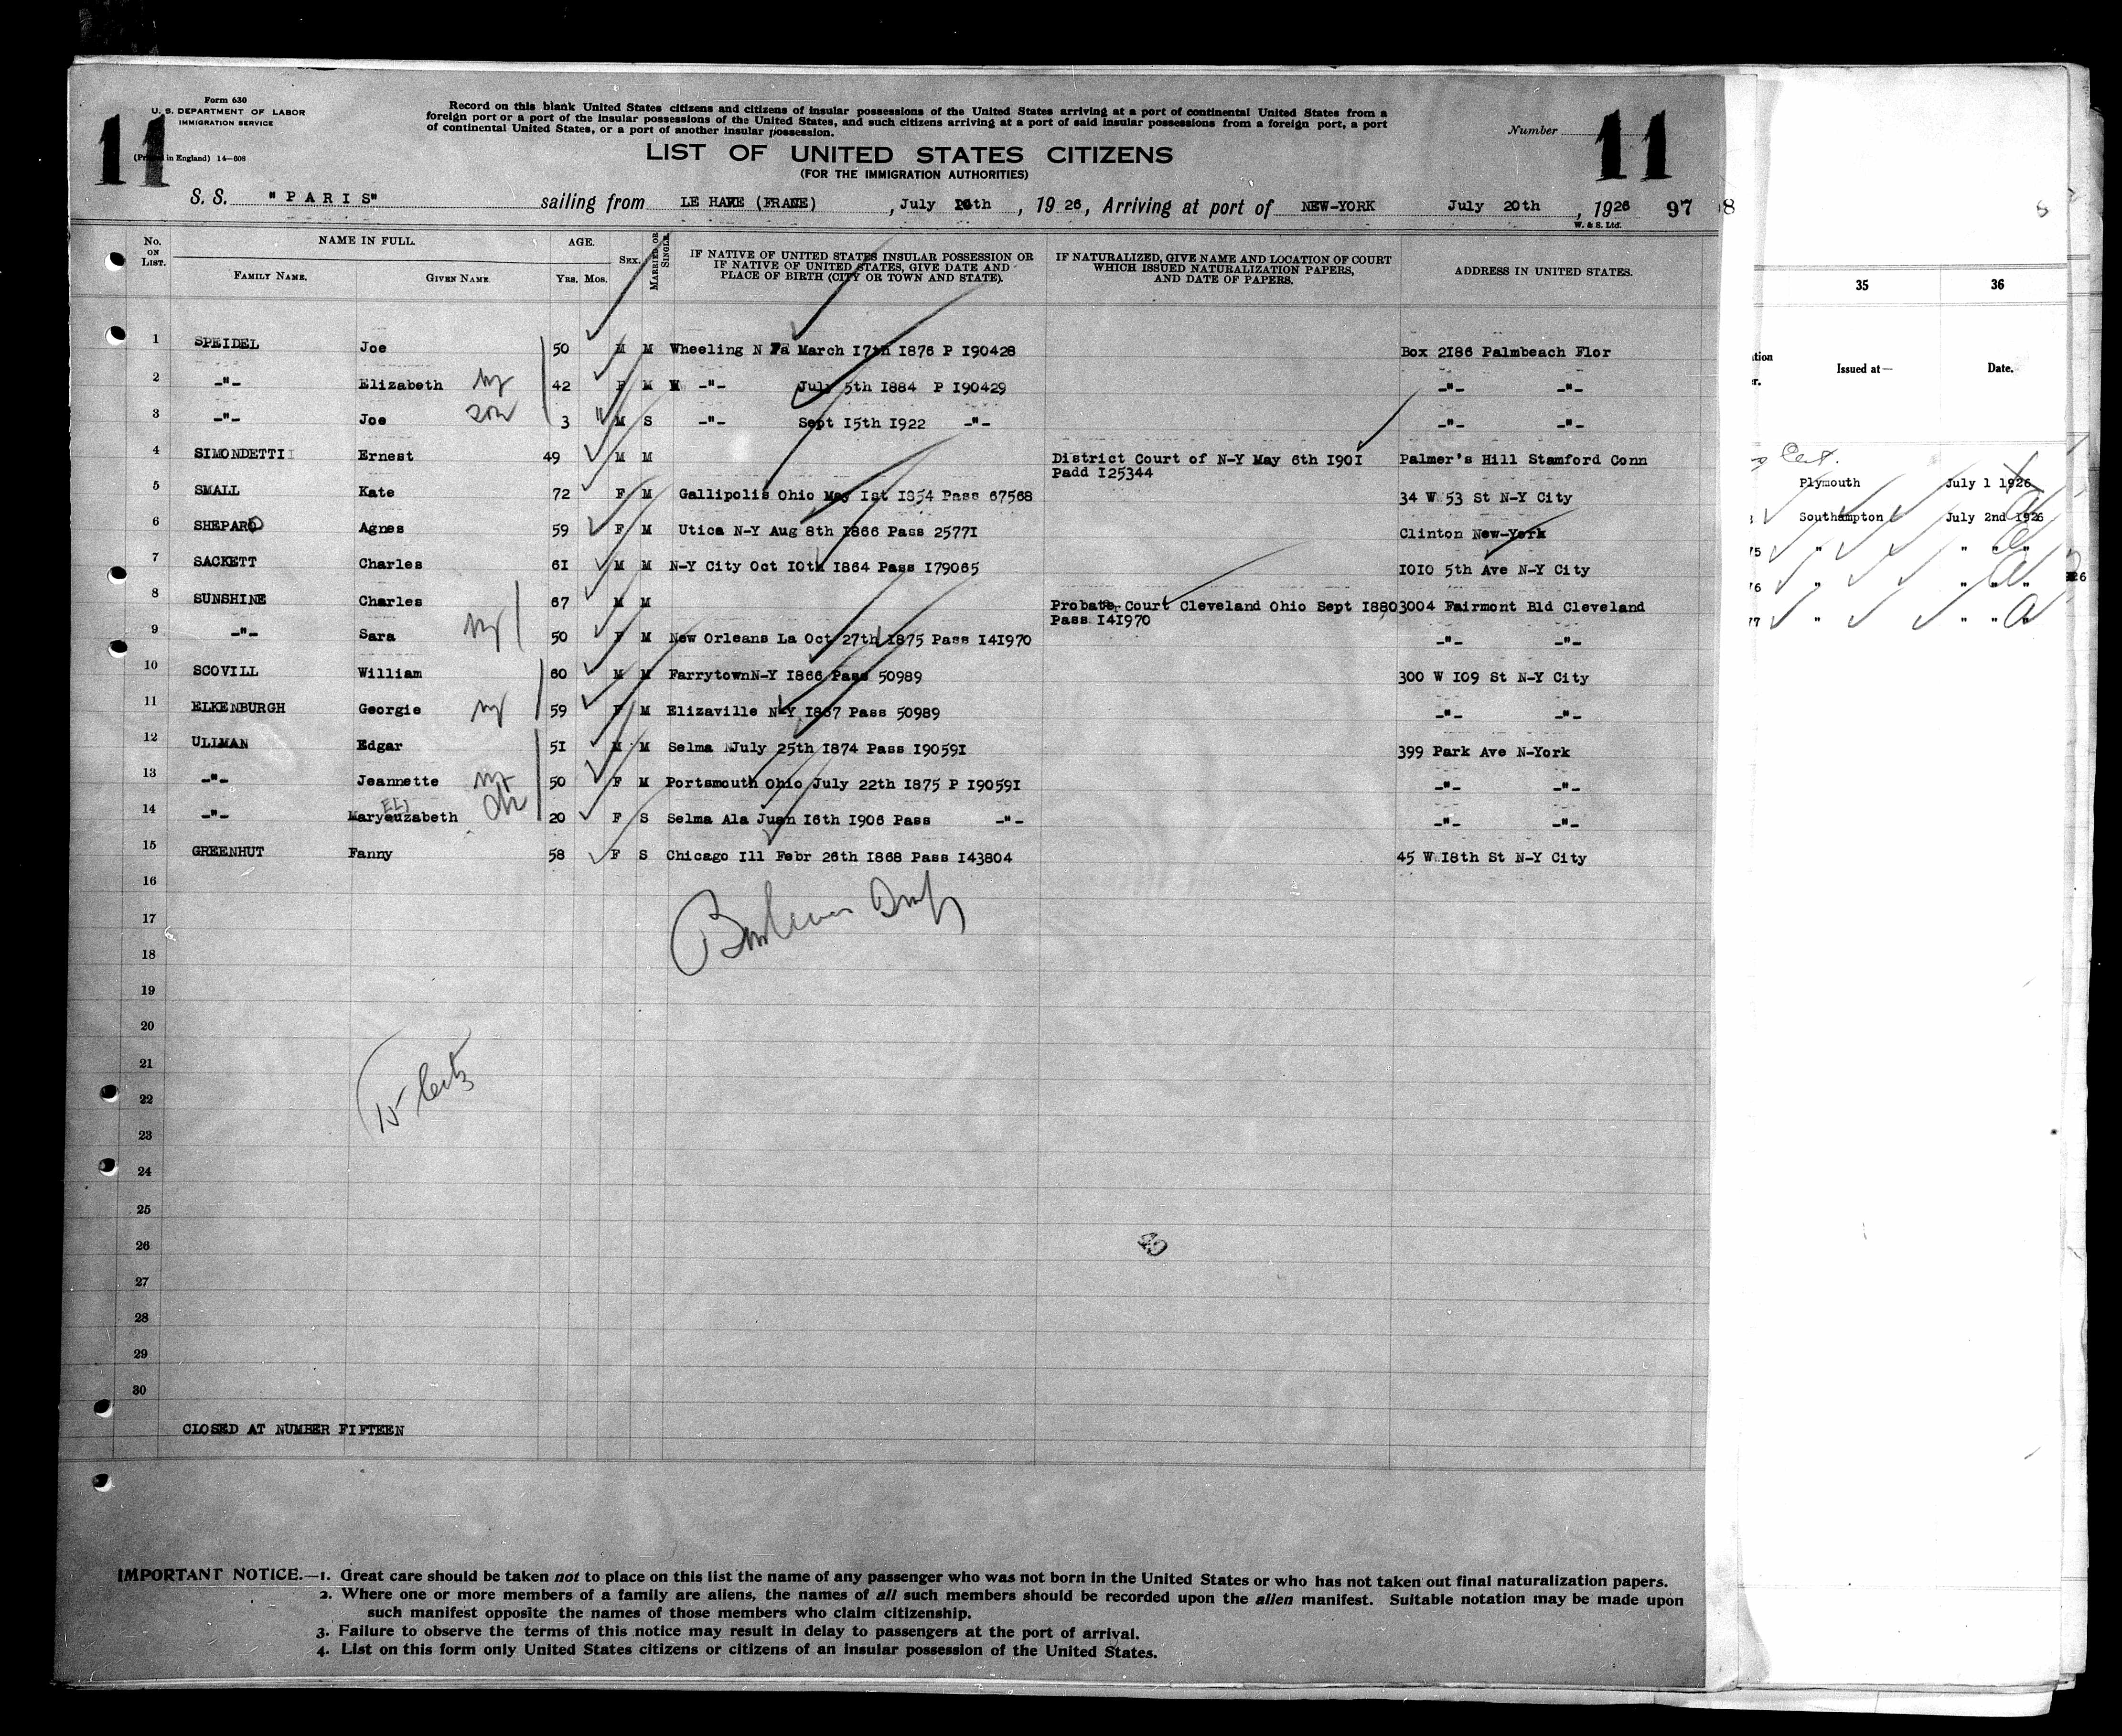 Form 630
U. S. DEPARTMENT OF LABOR
IMMIGRATION SERVICE
11
in England) 14-608
Record on this blank United States citizens and citizens of insular possessions of the United States arriving at a port of continental United States from a
foreign port or a port of the insular possessions of the United States, and such citizens arriving at a port of said insular possessions from a foreign port, a port
of continental United States, or a port of another insular possession.
Number 11
LIST OF UNITED STATES CITIZENS
(FOR THE IMMIGRATION AUTHORITIES)
S. S. "PARIS" sailing from LE HAVRE (FRANCE), July th, 1926, Arriving at port of NEW-YORK July 20th, 1926 97
W. & S. Ltd.
No. ON LIST. NAME IN FULL. FAMILY NAME. GIVEN NAME. AGE. Yrs. Mos. SEX. MARRIED OR SINGLE. IF NATIVE OF UNITED STATES INSULAR POSSESSION OR IF NATIVE OF UNITED STATES, GIVE DATE AND PLACE OF BIRTH (CITY OR TOWN AND STATE). IF NATURALIZED, GIVE NAME AND LOCATION OF COURT WHICH ISSUED NATURALIZATION PAPERS, AND DATE OF PAPERS. ADDRESS IN UNITED STATES.
1 SPEIDEL Joe 50 M M Wheeling March I7th I876 P I90428 Box 2I86 Palmbeach Flor
2 -"- Elizabeth 42 F M -"- July 5th I884 P I90429 -"- -"-
3 -"- Joe son 3 M S -"- Sept I5th I922 -"- -"- -"-
4 SIMONDETTI Ernest 49 M M District Court of N-Y May 6th I90I Palmer's Hill Stamford Conn
Padd I25344
5 SMALL Kate 72 F M Gallipolis Ohio May Ist I854 Pass 67568 34 W 53 St N-Y City
6 SHEPARD Agnes 59 F M Utica N-Y Aug 8th I866 Pass 2577I Clinton New-York
7 SACKETT Charles 6I M M N-Y City Oct IOth I864 Pass I79065 IOIO 5th Ave N-Y City
8 SUNSHINE Charles 67 M M Probate Court Cleveland Ohio Sept I880 3004 Fairmont Bld Cleveland
Pass I4I970
9 -"- Sara 50 F M New Orleans La Oct 27th I875 Pass I4I970 -"- -"-
10 SCOVILL William 60 M M FarrytownN-Y I866 Pass 50989 300 W I09 St N-Y City
11 ELKENBURGH Georgie 59 F M Elizaville N-Y I867 Pass 50989 -"- -"-
12 ULLMAN Edgar 5I M M Selma July 25th I874 Pass I9059I 399 Park Ave N-York
13 -"- Jeannette 50 F M Portsmouth Ohio July 22th I875 P I9059I -"- -"-
14 -"- Maryeuzabeth ELI 20 F S Selma Ala Juen I6th I906 Pass -"- -"- -"-
15 GREENHUT Fanny 58 F S Chicago Ill Febr 26th I868 Pass I43804 45 W I8th St N-Y City
16
17
18
19
20
21
22
23
24
25
26
27
28
29
30
CLOSED AT NUMBER FIFTEEN
IMPORTANT NOTICE.—1. Great care should be taken not to place on this list the name of any passenger who was not born in the United States or who has not taken out final naturalization papers.
2. Where one or more members of a family are aliens, the names of all such members should be recorded upon the alien manifest. Suitable notation may be made upon
such manifest opposite the names of those members who claim citizenship.
3. Failure to observe the terms of this notice may result in delay to passengers at the port of arrival.
4. List on this form only United States citizens or citizens of an insular possession of the United States.
35 36
Issued at— Date.
Plymouth July 1 1926
Southampton July 2nd 1926
" " "
" " "
" " "